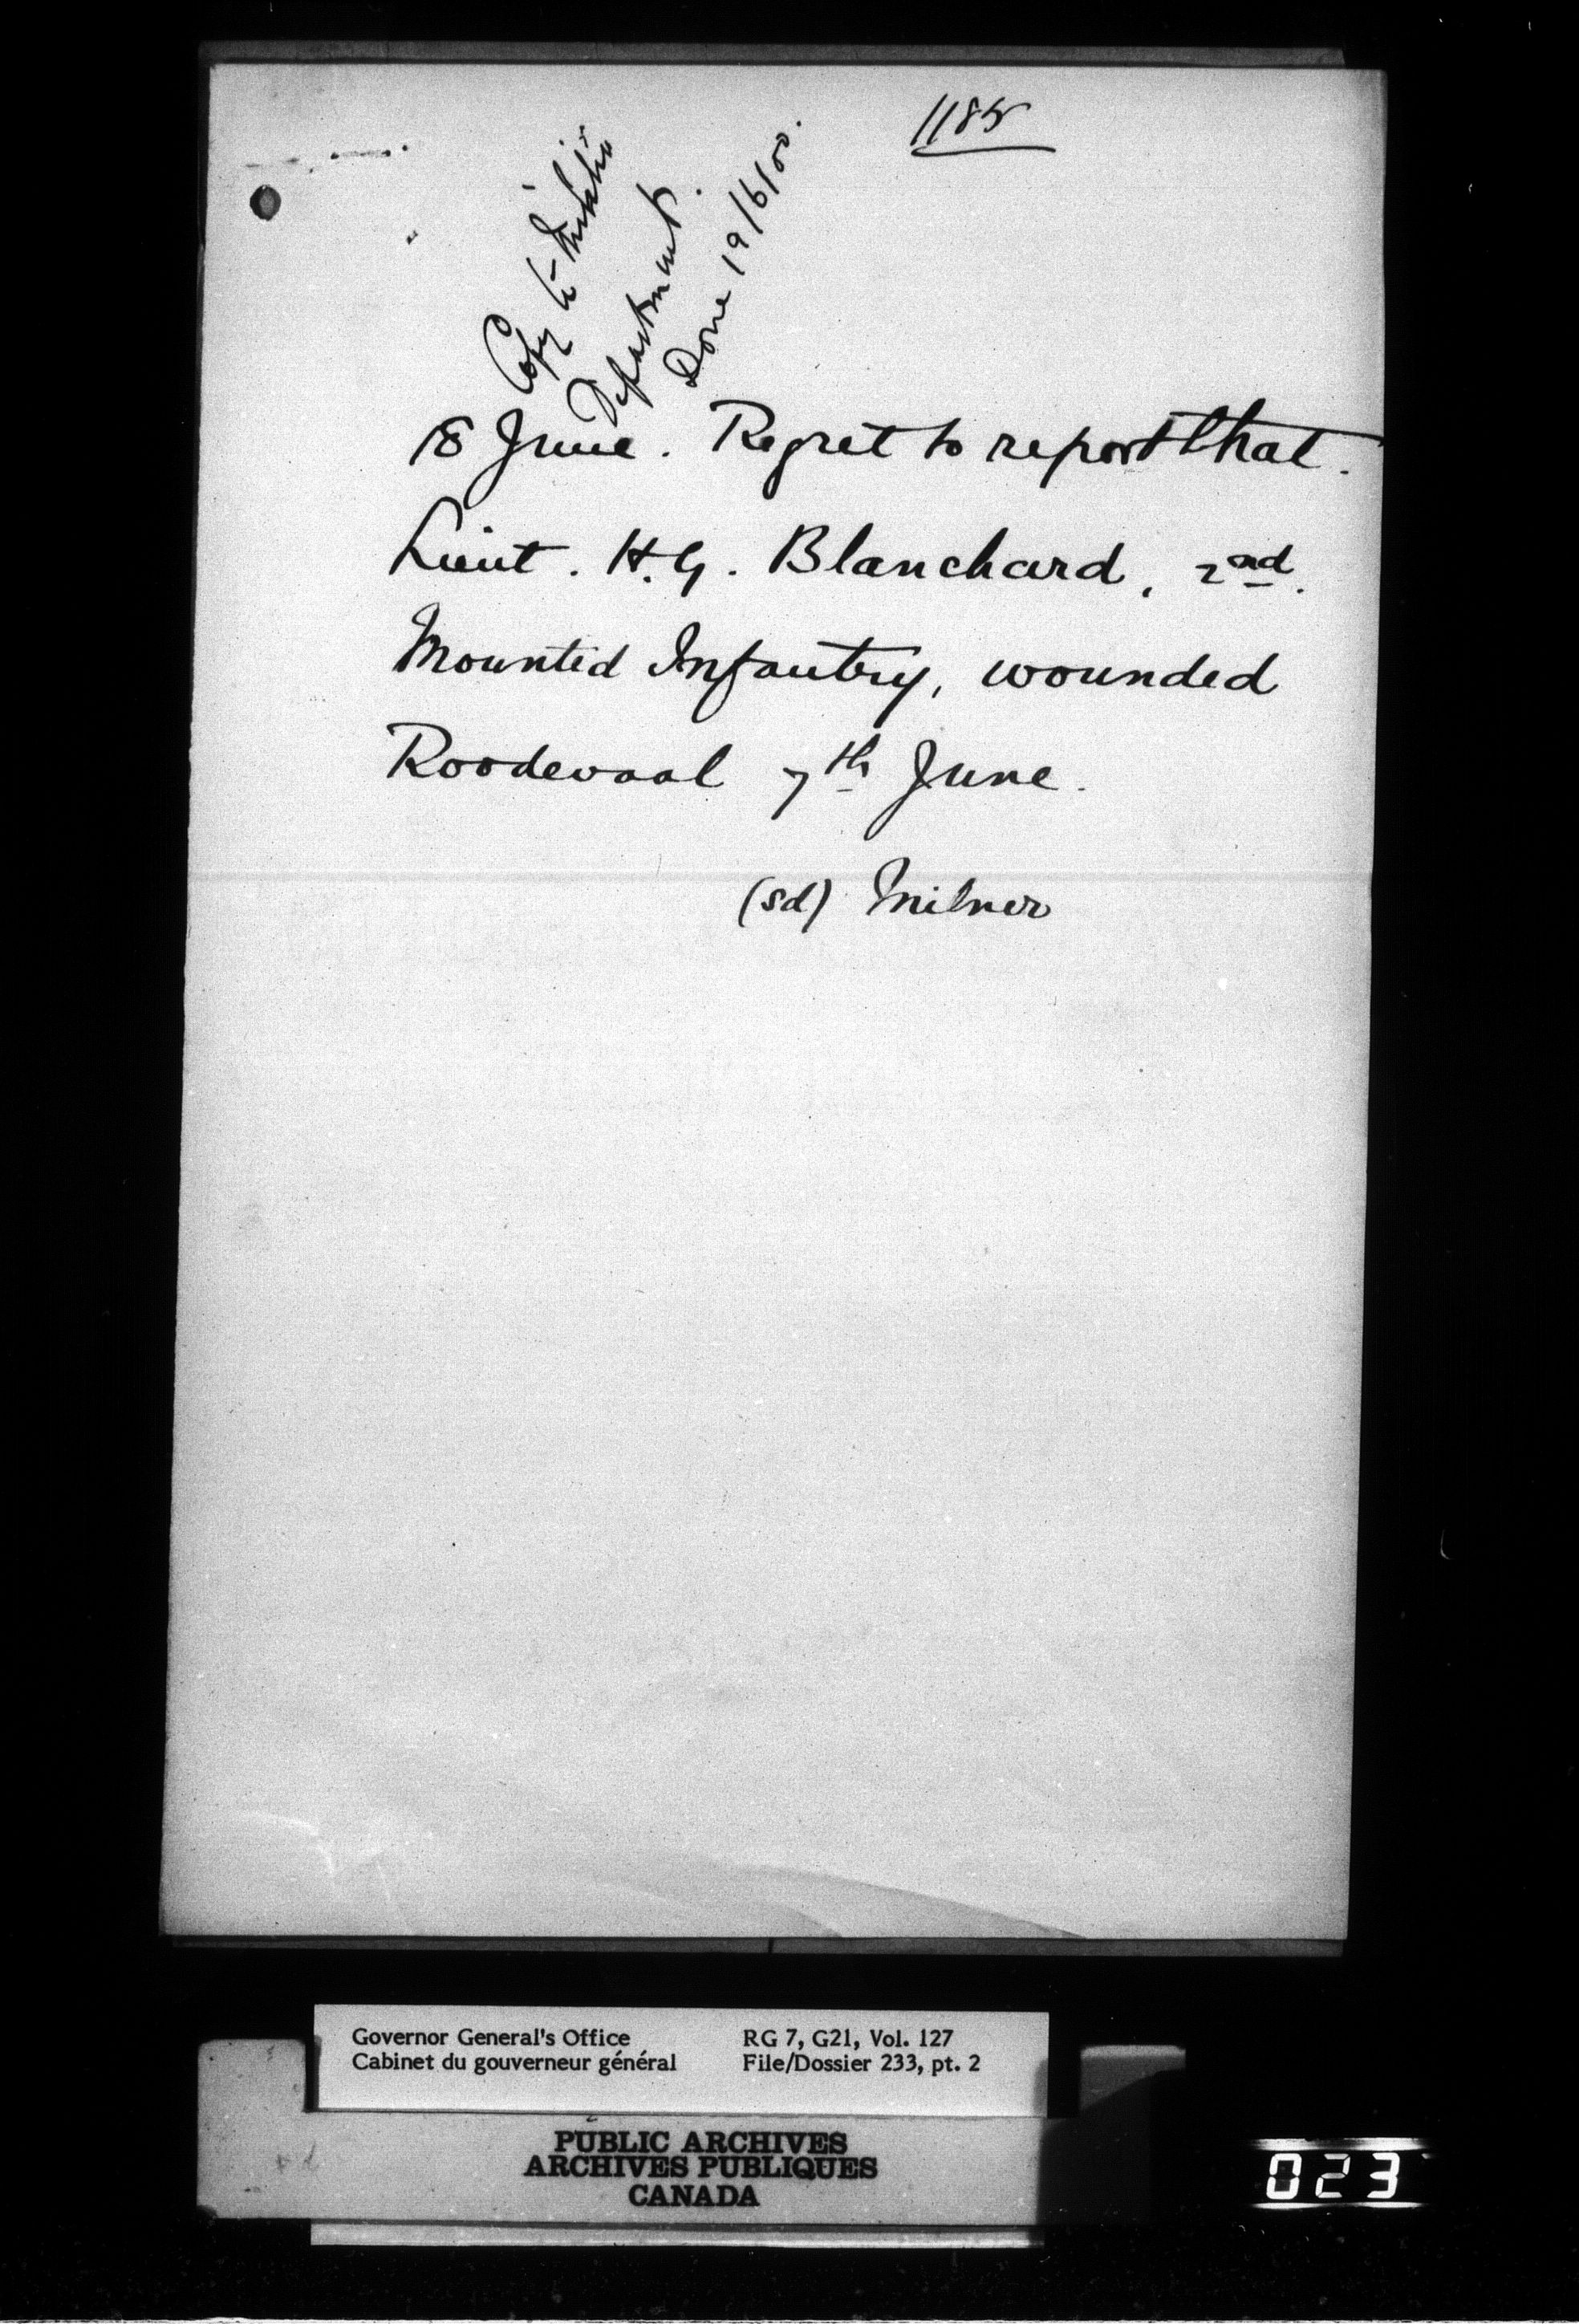 1185
Copy to Militia
Department.
Done 19/6/00.
18 June. Regret to report that
Lieut. H.G. Blanchard, 2nd.
Mounted Infantry, wounded
Roodevaal 7th June.
(sd) Milner
Governor General's Office RG 7, G21, Vol. 127
Cabinet du gouverneur général File/Dossier 233, pt. 2
PUBLIC ARCHIVES
ARCHIVES PUBLIQUES
CANADA
023